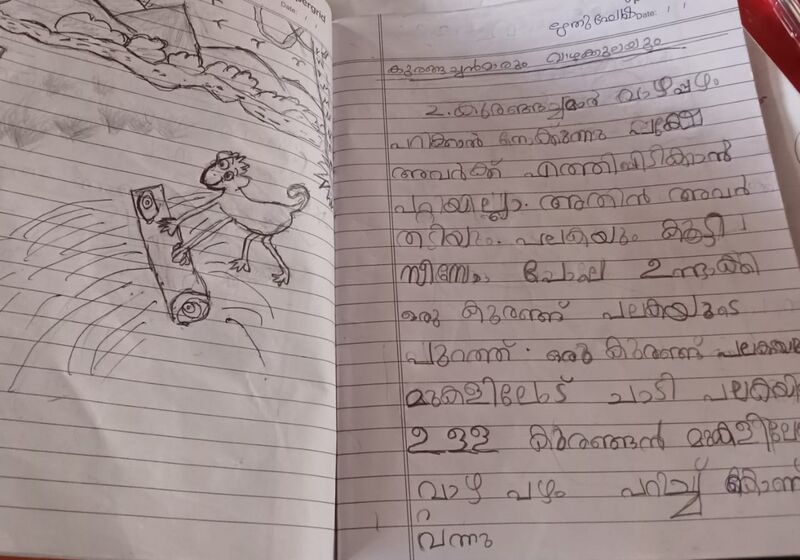 Date: / /
Date: / /
കുരങ്ങച്ചൻമാരും വാഴക്കുലയും
2. കുരങ്ങച്ചമാർ വാഴപ്പഴം
പറിക്കാൻ നോക്കുന്നു പക്ഷേ
അവർക്ക് എത്തിപിടിക്കാൻ
പറ്റിയില്ല. അതിൻ അവർ
തടിയും. പലകയും കൂട്ടി
സീസോ പോലെ ഉന്ദാക്കി
ഒരു കുരങ്ങ് പലകയുടെ
പുറത്ത്. ഒരു കുരങ്ങ് പലകയുടെ
മുകളിലേട് ചാടി പലകയി
ഉള്ള കുരങ്ങൻ മുകളിലേ
വാഴ പഴം പറിച്ച് കൊണ്
വന്നു